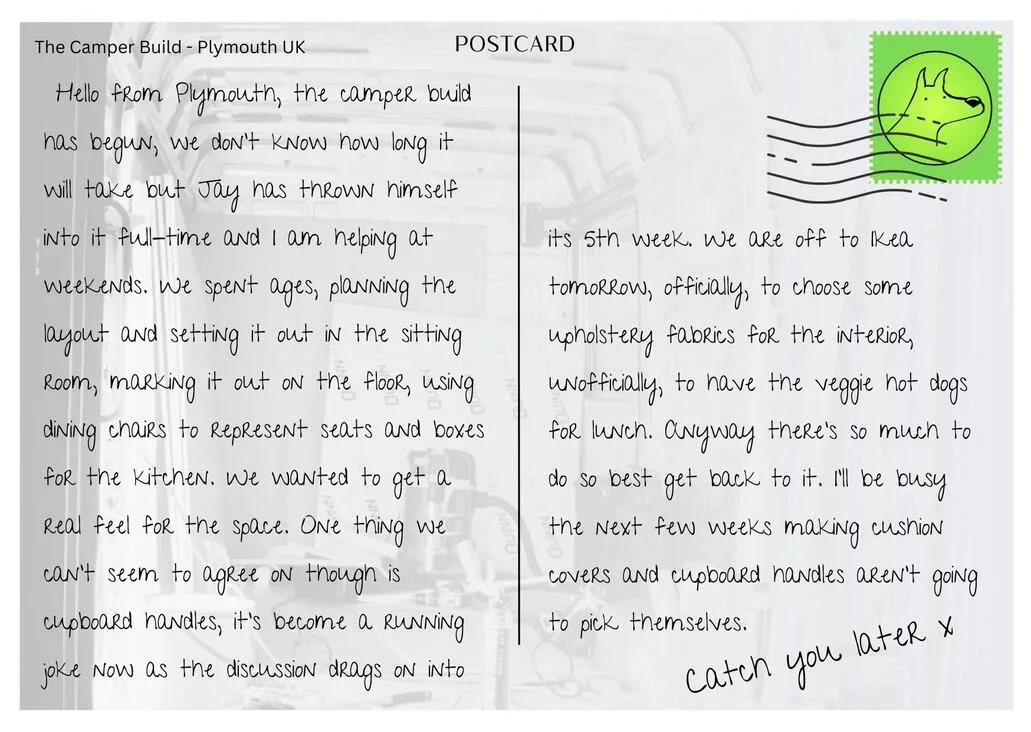 The Camper Build - Plymouth UK
POSTCARD
Hello from Plymouth, the camper build
has begun, we don't know how long it
will take but Jay has thrown himself
into it full-time and I am helping at
weekends. We spent ages, planning the
layout and setting it out in the sitting
room, marking it out on the floor, using
dining chairs to represent seats and boxes
for the kitchen. We wanted to get a
real feel for the space. One thing we
can't seem to agree on though is
cupboard handles, it's become a running
joke now as the discussion drags on into
its 5th week. We are off to Ikea
tomorrow, officially, to choose some
upholstery fabrics for the interior,
unofficially, to have the veggie hot dogs
for lunch. Anyway there's so much to
do so best get back to it. I'll be busy
the next few weeks making cushion
covers and cupboard handles aren't going
to pick themselves.
Catch you later x